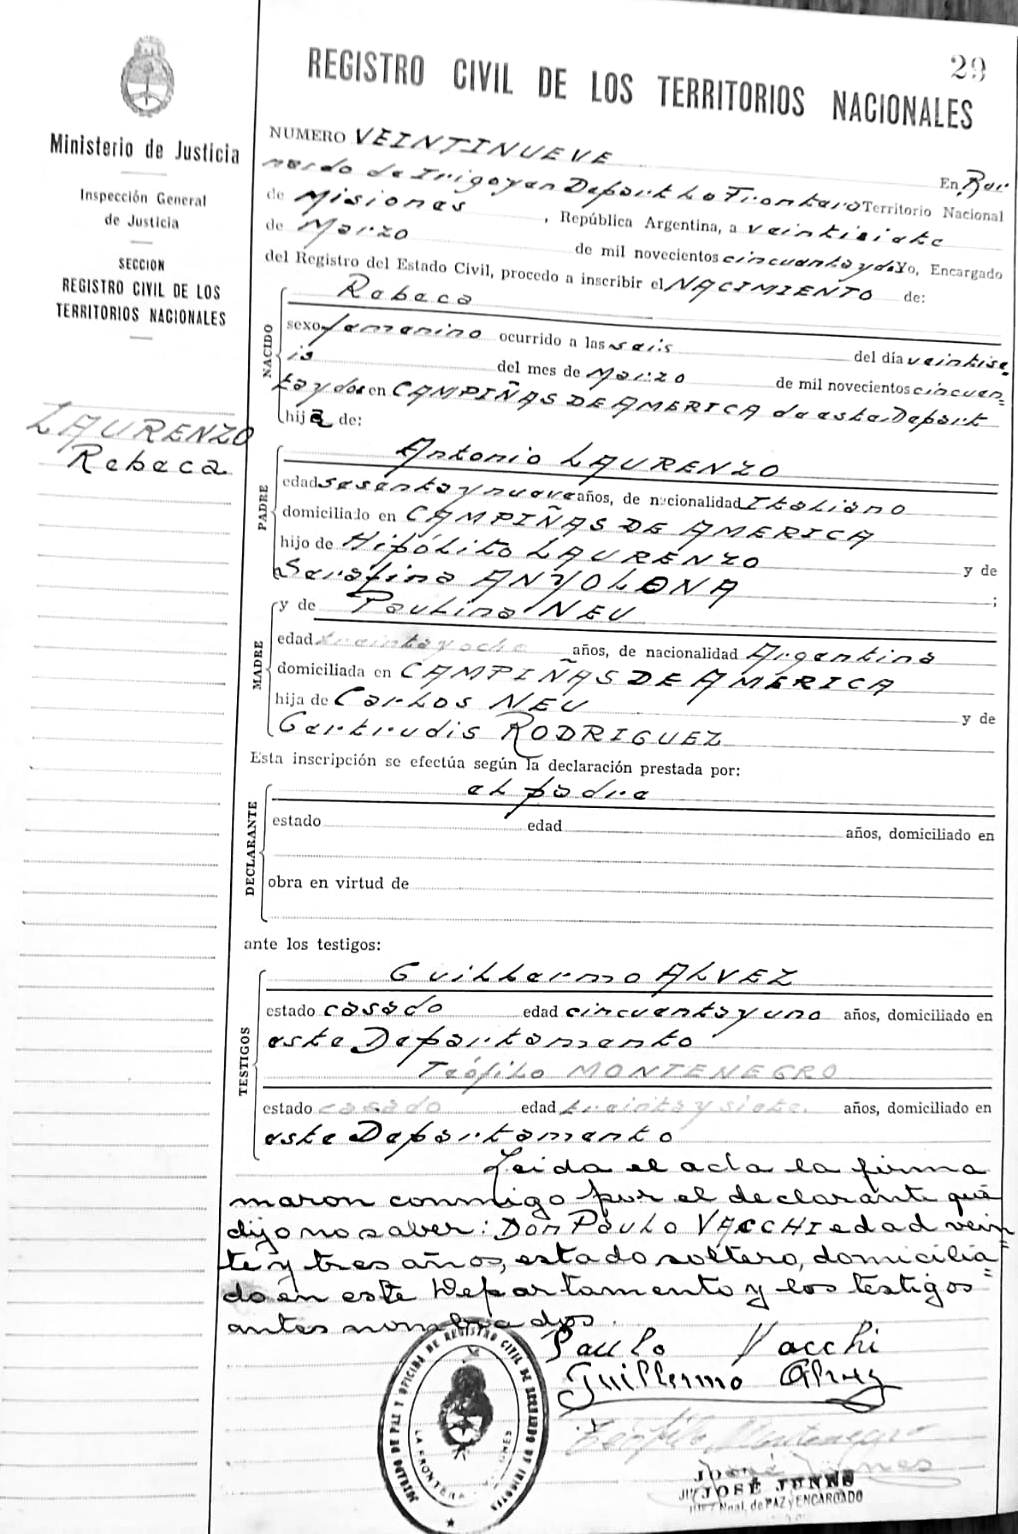 29
REGISTRO CIVIL DE LOS TERRITORIOS NACIONALES
Ministerio de Justicia
Inspección General
de Justicia
SECCION
REGISTRO CIVIL DE LOS
TERRITORIOS NACIONALES
LAURENZO
Rebeca
NUMERO VEINTINUEVE
En Ber
nardo de Irigoyen Depart La Frontera Territorio Nacional
de Misiones, República Argentina, a veintisiete
de Marzo de mil novecientos cincuenta y dos Yo, Encargado
del Registro del Estado Civil, procedo a inscribir el NACIMIENTO de:
NACIDO
Rebeca
sexo femenino ocurrido a las seis del día veintise
is del mes de Marzo de mil novecientos cincuen=
ta y dos en CAMPIÑAS DE AMERICA de este Depart
hija de:
PADRE
Antonio LAURENZO
edad sesenta y nueve años, de nacionalidad Italiano
domiciliado en CAMPIÑAS DE AMERICA
hijo de Hipólito LAURENZO y de
Serafina ;
MADRE
y de Paulina NEU
edad treinta y ocho años, de nacionalidad Argentina
domiciliada en CAMPIÑAS DE AMERICA
hija de Carlos NEU y de
Gertrudis RODRIGUEZ
Esta inscripción se efectúa según la declaración prestada por:
DECLARANTE
el padre
estado edad años, domiciliado en
obra en virtud de
ante los testigos:
TESTIGOS
Guillermo ALVEZ
estado casado edad cincuenta y uno años, domiciliado en
este Departamento
Teófilo MONTENEGRO
estado casado edad treinta y siete. años, domiciliado en
este Departamento
Leida el acta la firma
maron conmigo por el declarante que
dijo no saber: Don Paulo VACCHI edad vein=
te y tres años, estado soltero, domicilia=
do en este Departamento y los testigos
antes nombrados.
Paulo Vacchi
Guillermo Alvez
Teófilo Montenegro
JUZGADO DE PAZ Y OFICINA DE REGISTRO CIVIL DE BERNARDO DE IRIGOYEN
LA FRONTERA MISIONES
JOSÉ JUNES
JUEZ Nnal. de PAZ y ENCARGADO